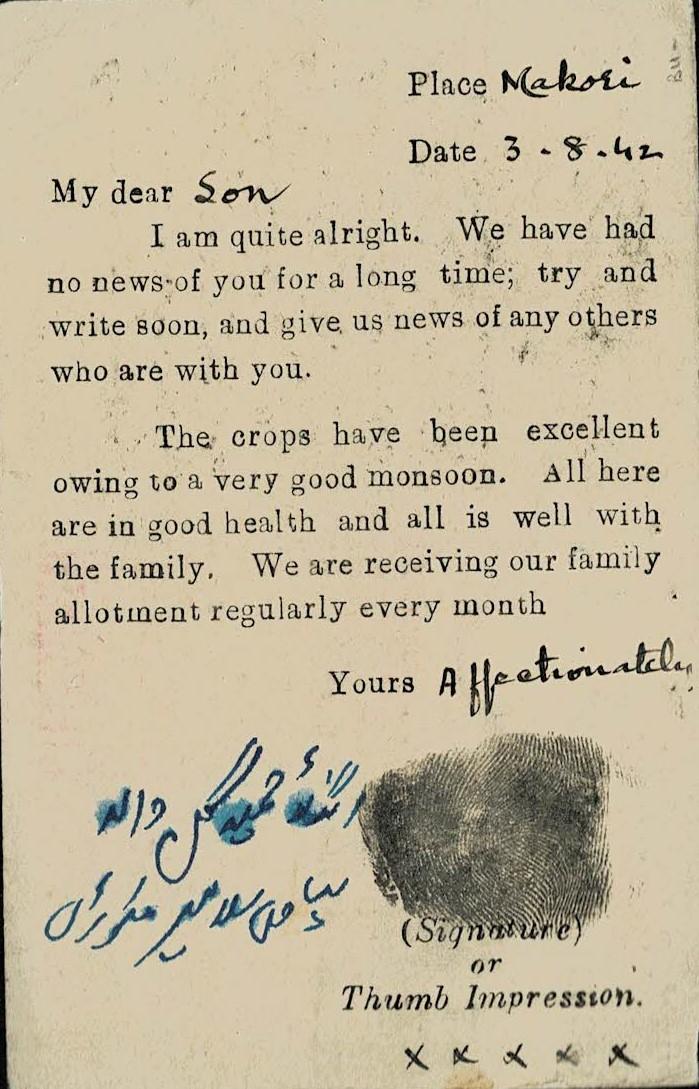 Place Makori
Date 3-8-42
My dear Son
I am quite alright. We have had
no news of you for a long time; try and
write soon, and give us news of any others
who are with you.
The crops have been excellent
owing to a very good monsoon. All here
are in good health and all is well with
the family. We are receiving our family
allotment regularly every month
Yours Affectionately
گل
(Signature)
or
Thumb Impression.
x x x x x